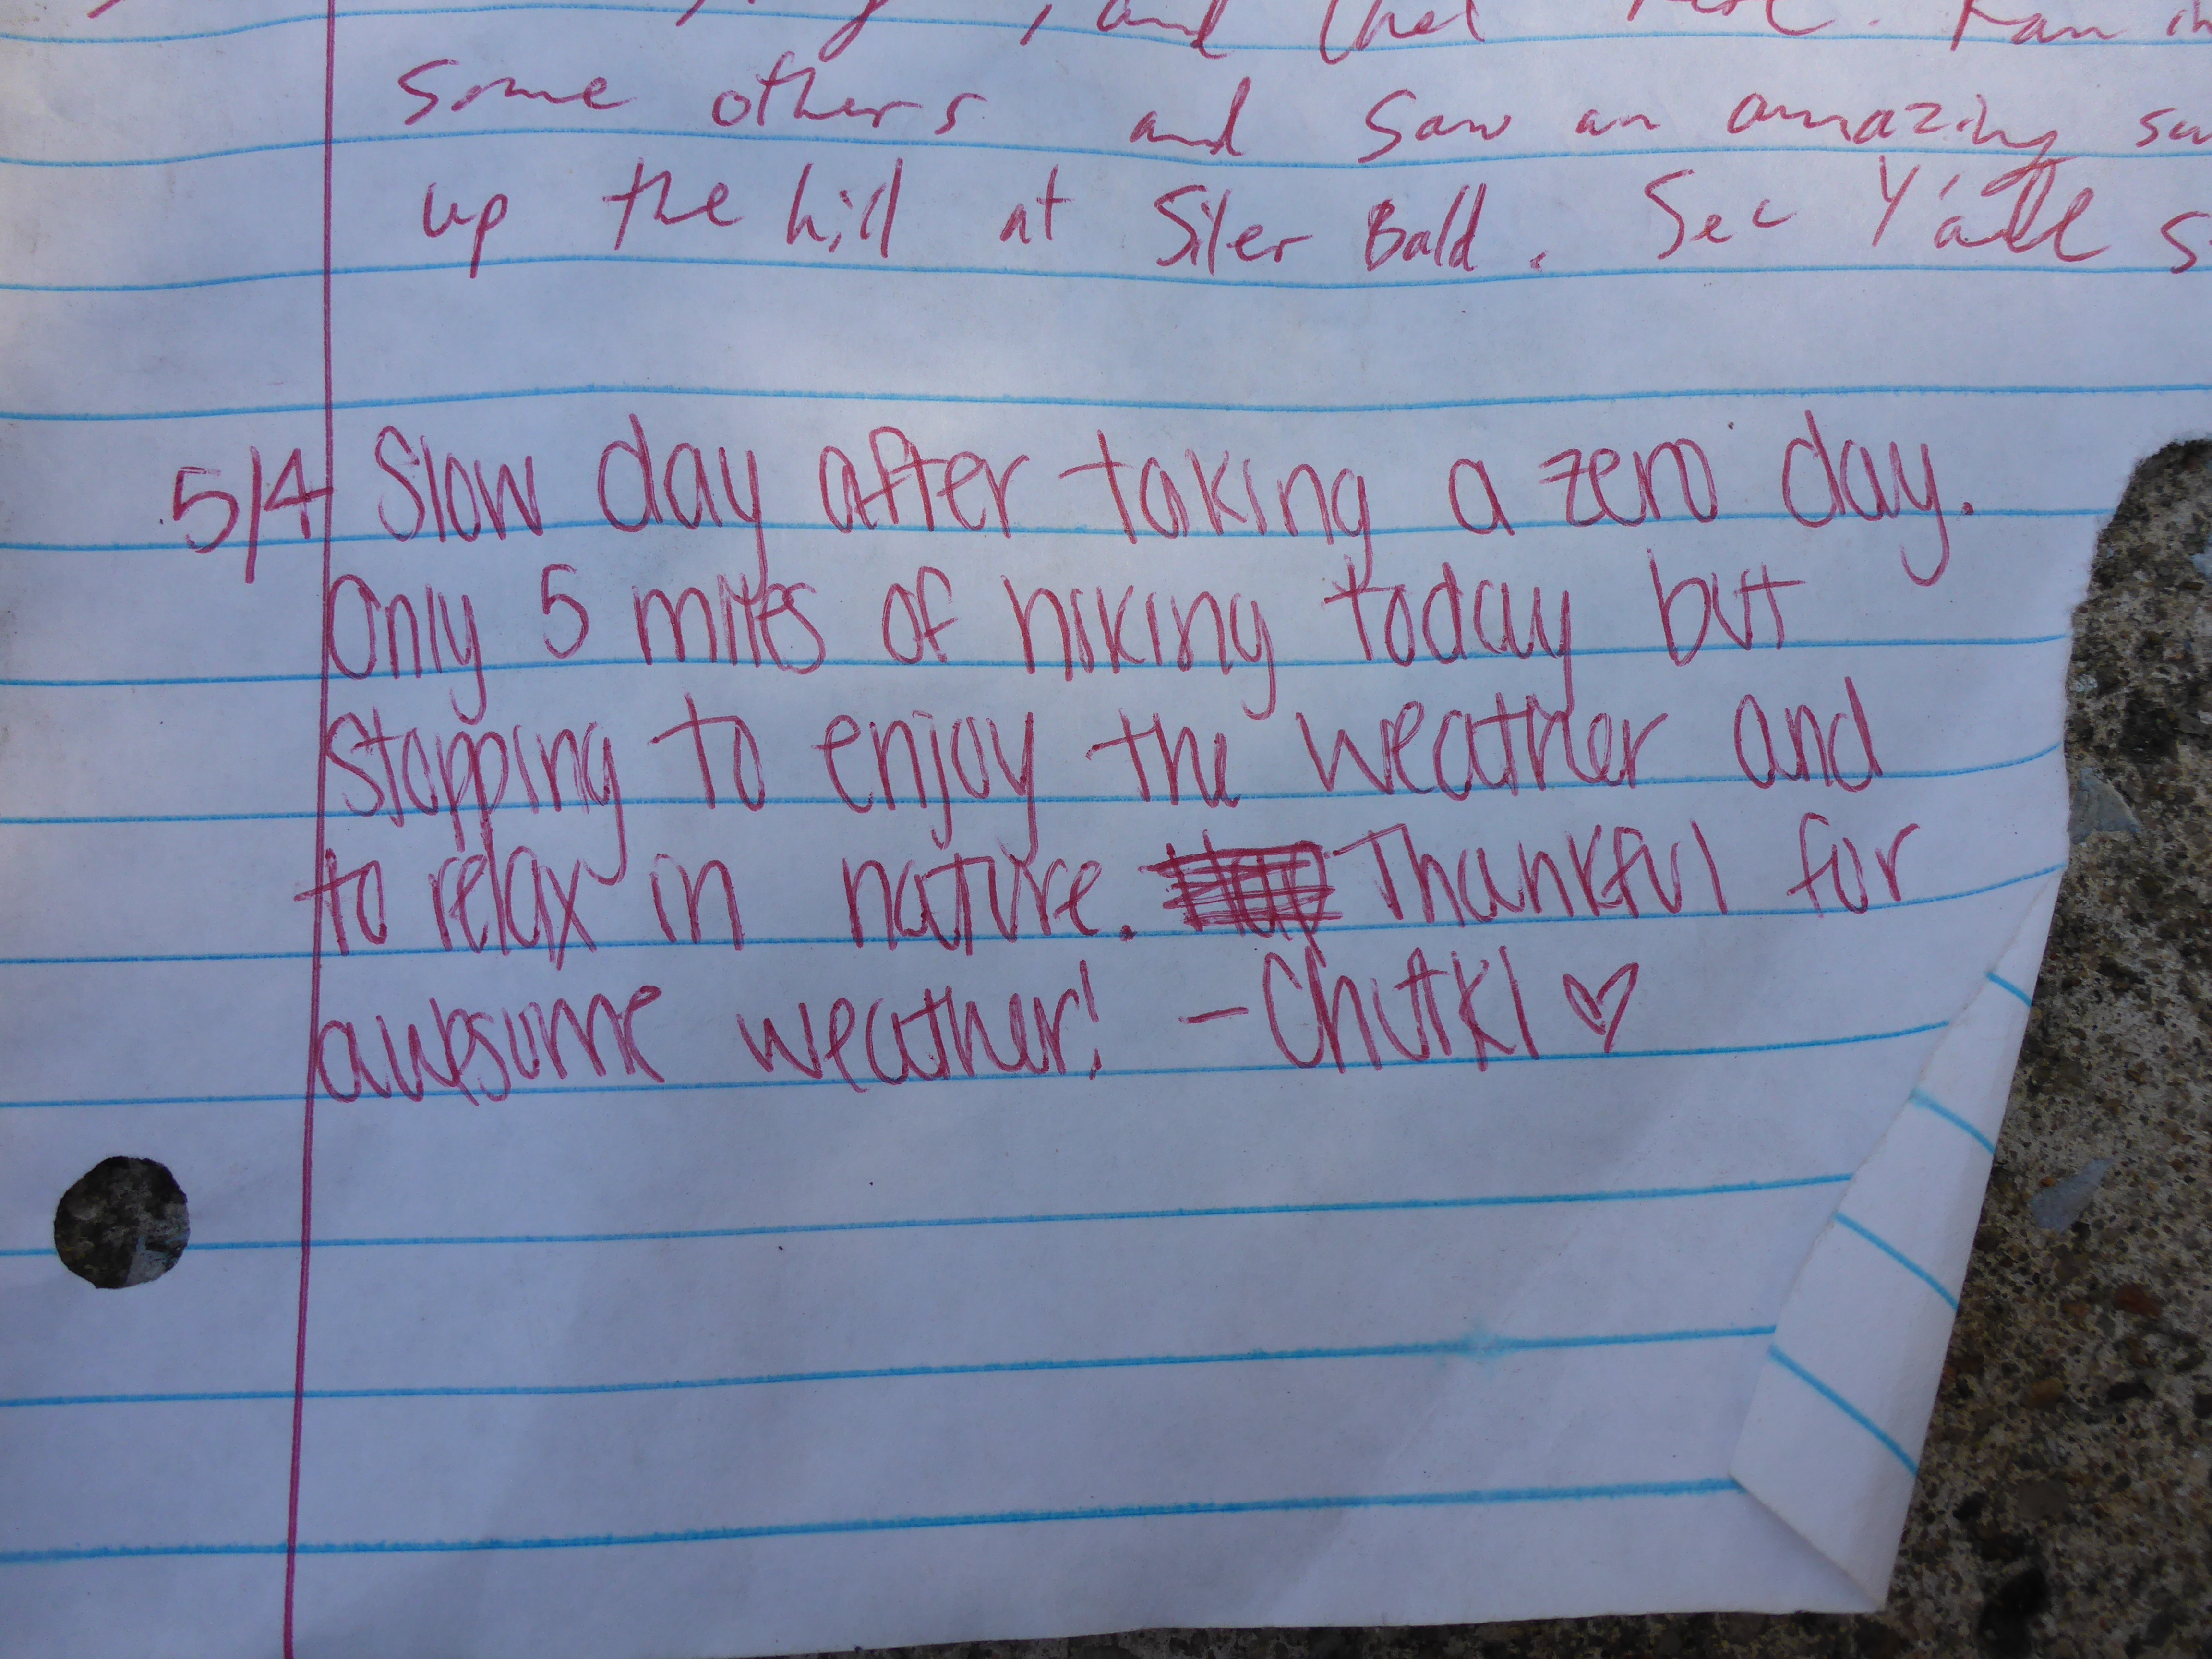 , and that
some others and saw an amazing
up the hill at Siler Bald. See Y'all
5/4 Slow day after taking a zero day.
Only 5 miles of hiking today but
stopping to enjoy the weather and
to relax in nature. Thankful for
awesome weather! - Chutki ♡